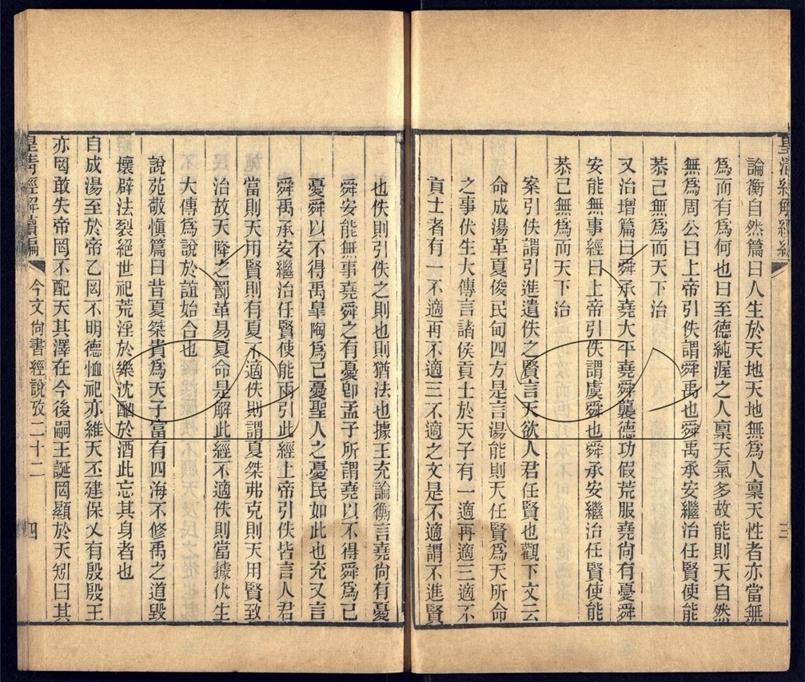 皇清經解續編
三
論衡自然篇曰人生於天地天地無爲人稟天性者亦當無
爲而有爲何也曰至德純渥之人稟天氣多故能則天自然
無爲周公曰上帝引佚謂舜禹也舜禹承安繼治任賢使能
恭己無爲而天下治
又治增篇曰舜承堯大平堯舜襲德功假荒服堯尙有憂舜
安能無事經曰上帝引佚謂虞舜也舜承安繼治任賢使能
恭己無爲而天下治
案引佚謂引進遺佚之賢言天欲人君任賢也觀下文云
命成湯革夏俊民甸四方是言湯能則天任賢爲天所命
之事伏生大傳言諸侯貢士於天子有一適再適三適不
貢士者有一不適再不適三不適之文是不適謂不進賢
也佚則引佚之則也則猶法也據王充論衡言堯尙有憂
舜安能無事堯舜之有憂卽孟子所謂堯以不得舜爲己
憂舜以不得禹臯陶爲己憂聖人之憂民如此也充又言
舜禹承安繼治任賢使能兩引此經上帝引佚皆言人君
當則天用賢則有夏不適佚則謂夏桀弗克則天用賢致
治故天降之罰革易夏命是解此經不適佚則當據伏生
大傳爲說於誼始合也
說苑敬愼篇曰昔夏桀貴爲天子富有四海不修禹之道毀
壞辟法裂絕世祀荒淫於樂沈酗於酒此忘其身者也
自成湯至於帝乙罔不明德恤祀亦維天丕建保乂有殷殷王
亦罔敢失帝罔不配天其澤在今後嗣王誕罔顯於天矧曰其
皇清經解續編
今文尙書經說攷二十二
四